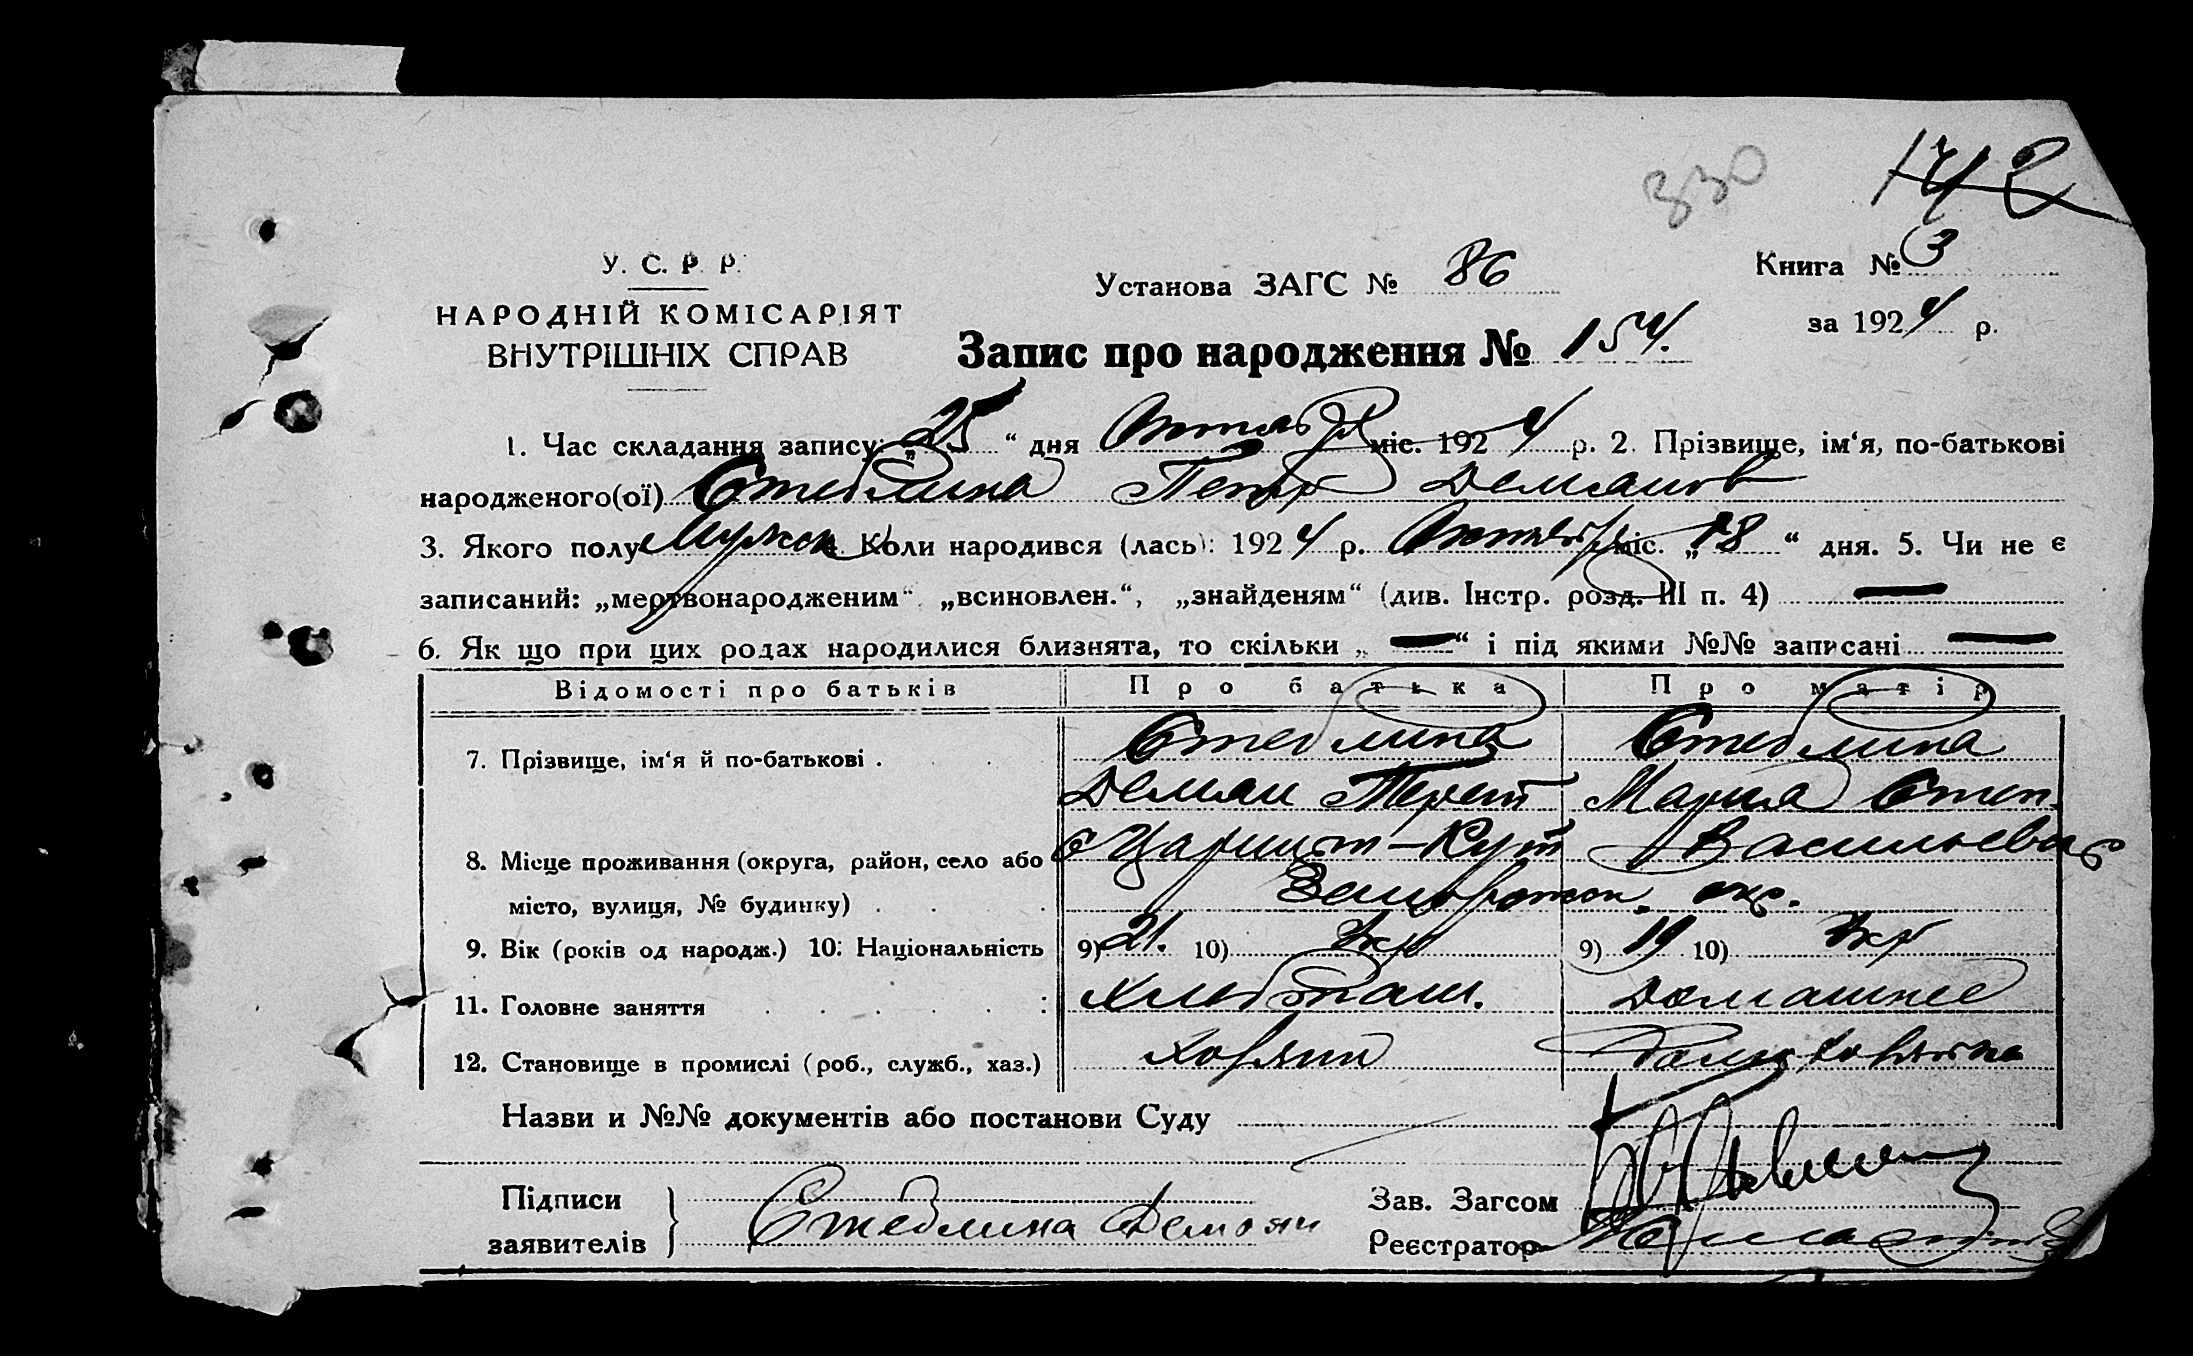 330
142
У. С. Р. Р.
Установа ЗАГС № 86
Книга № 3
НАРОДНІЙ КОМІСАРІЯТ
за 1924 р.
ВНУТРІШНІХ СПРАВ
Запис про народження № 154.
1. Час складання запису: „25“ дня Октяб міс. 1924 р. 2. Прізвище, ім‘я, по-батькові
народженого(ої) Стеблина Петр Демьянов
3. Якого полу Мужск 4. Коли народився (лась): 1924 р. Октября міс. „18“ дня. 5. Чи не є
записаний: „мертвонародженим“, „всиновлен.“, „знайденям“ (див. Інстр. розд. III п. 4) —
6. Як що при цих родах народилися близнята, то скільки „—“ і під якими №№ записані —
Відомості про батьків Про батька Про матір
7. Прізвище, ім‘я й по-батькові . Стеблина Стеблина
Демьян Терент Мария Степ.
8. Місце проживання (округа, район, село або с Царицын-Кут Васильевск
місто, вулиця, № будинку) . . . Запорожск. окр.
9. Вік (років од народж.) 10. Національність 9) 21. 10) Укр 9) 19 10) Укр
11. Головне заняття . . . . . : Хлебопаш. Домашнее
12. Становище в промислі (роб., служб., хаз.) Хозяин
Назви и №№ документів або постанови Суду
Підписи
заявителів } Стеблина Демян
Зав. Загсом
Реєстратор